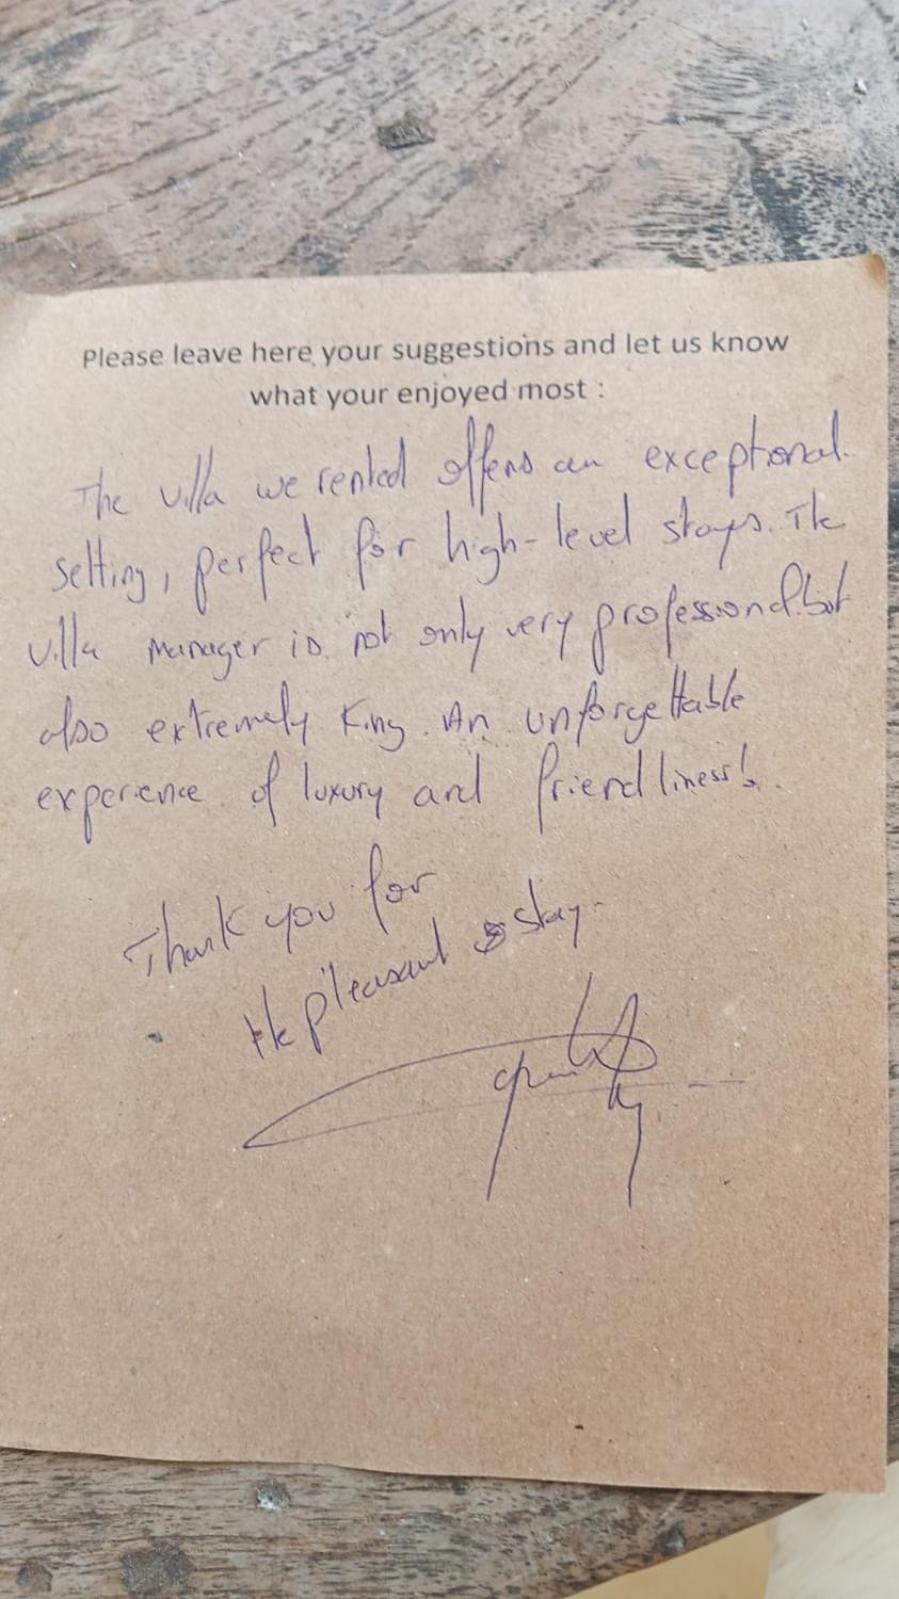 Please leave here your suggestions and let us know
what your enjoyed most :
The villa we rented offers an exceptional.
setting, perfect for high-level stays. The
villa manager is not only very professional but
also extremely King. An unforgettable
experience of luxury and friendliness!.
Thank you for
the pleasant stay.